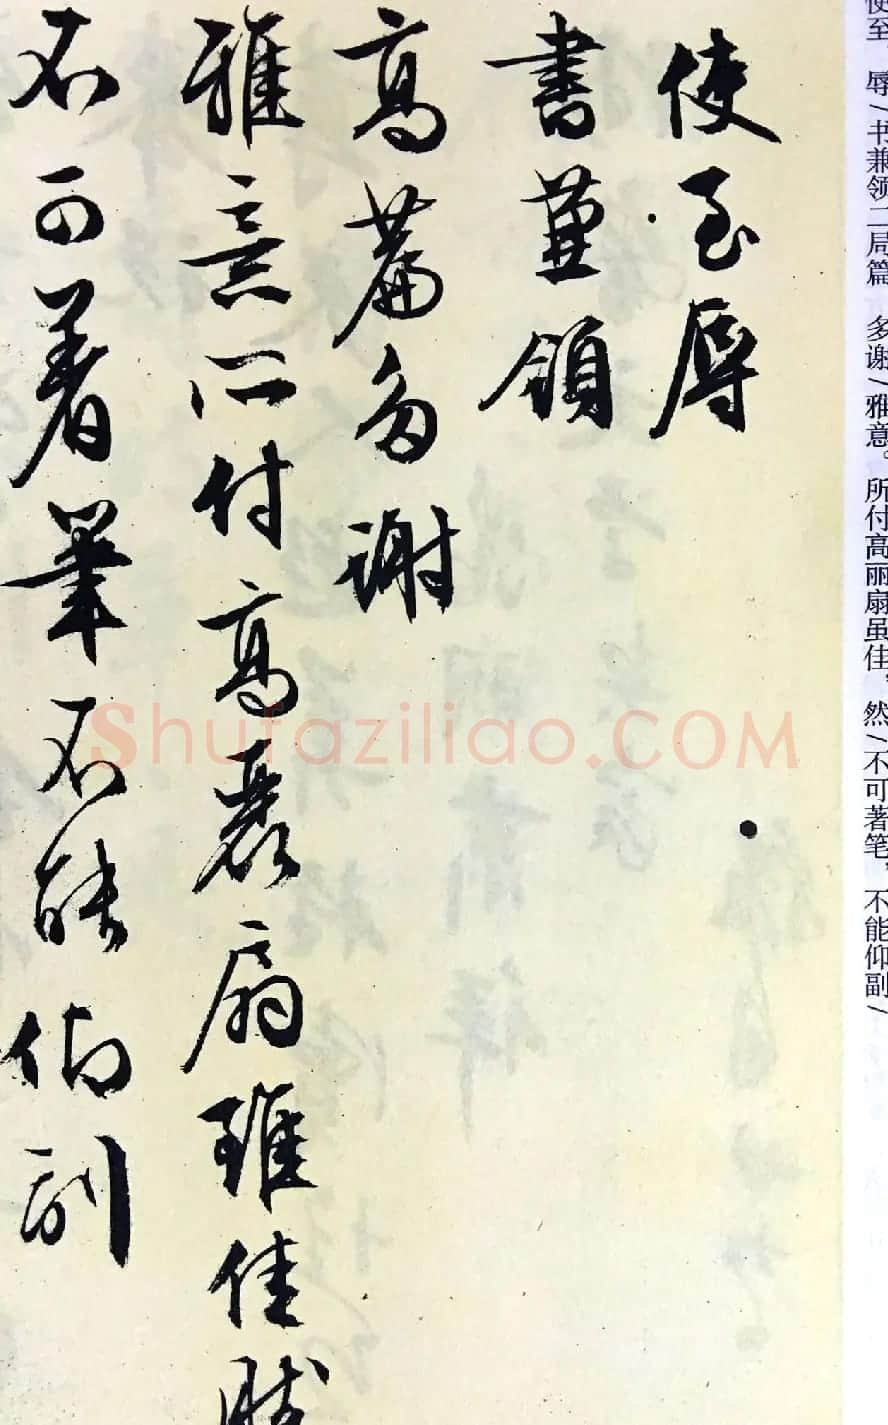 使至 辱/书兼领二局篇 多谢/雅意。所付高丽扇虽佳，然/不可著笔，不能仰副/
使至辱
書兼領
高篇多謝
雅意所付高麗扇雖佳然
不可著筆不能仰副
Shufaziliao.COM